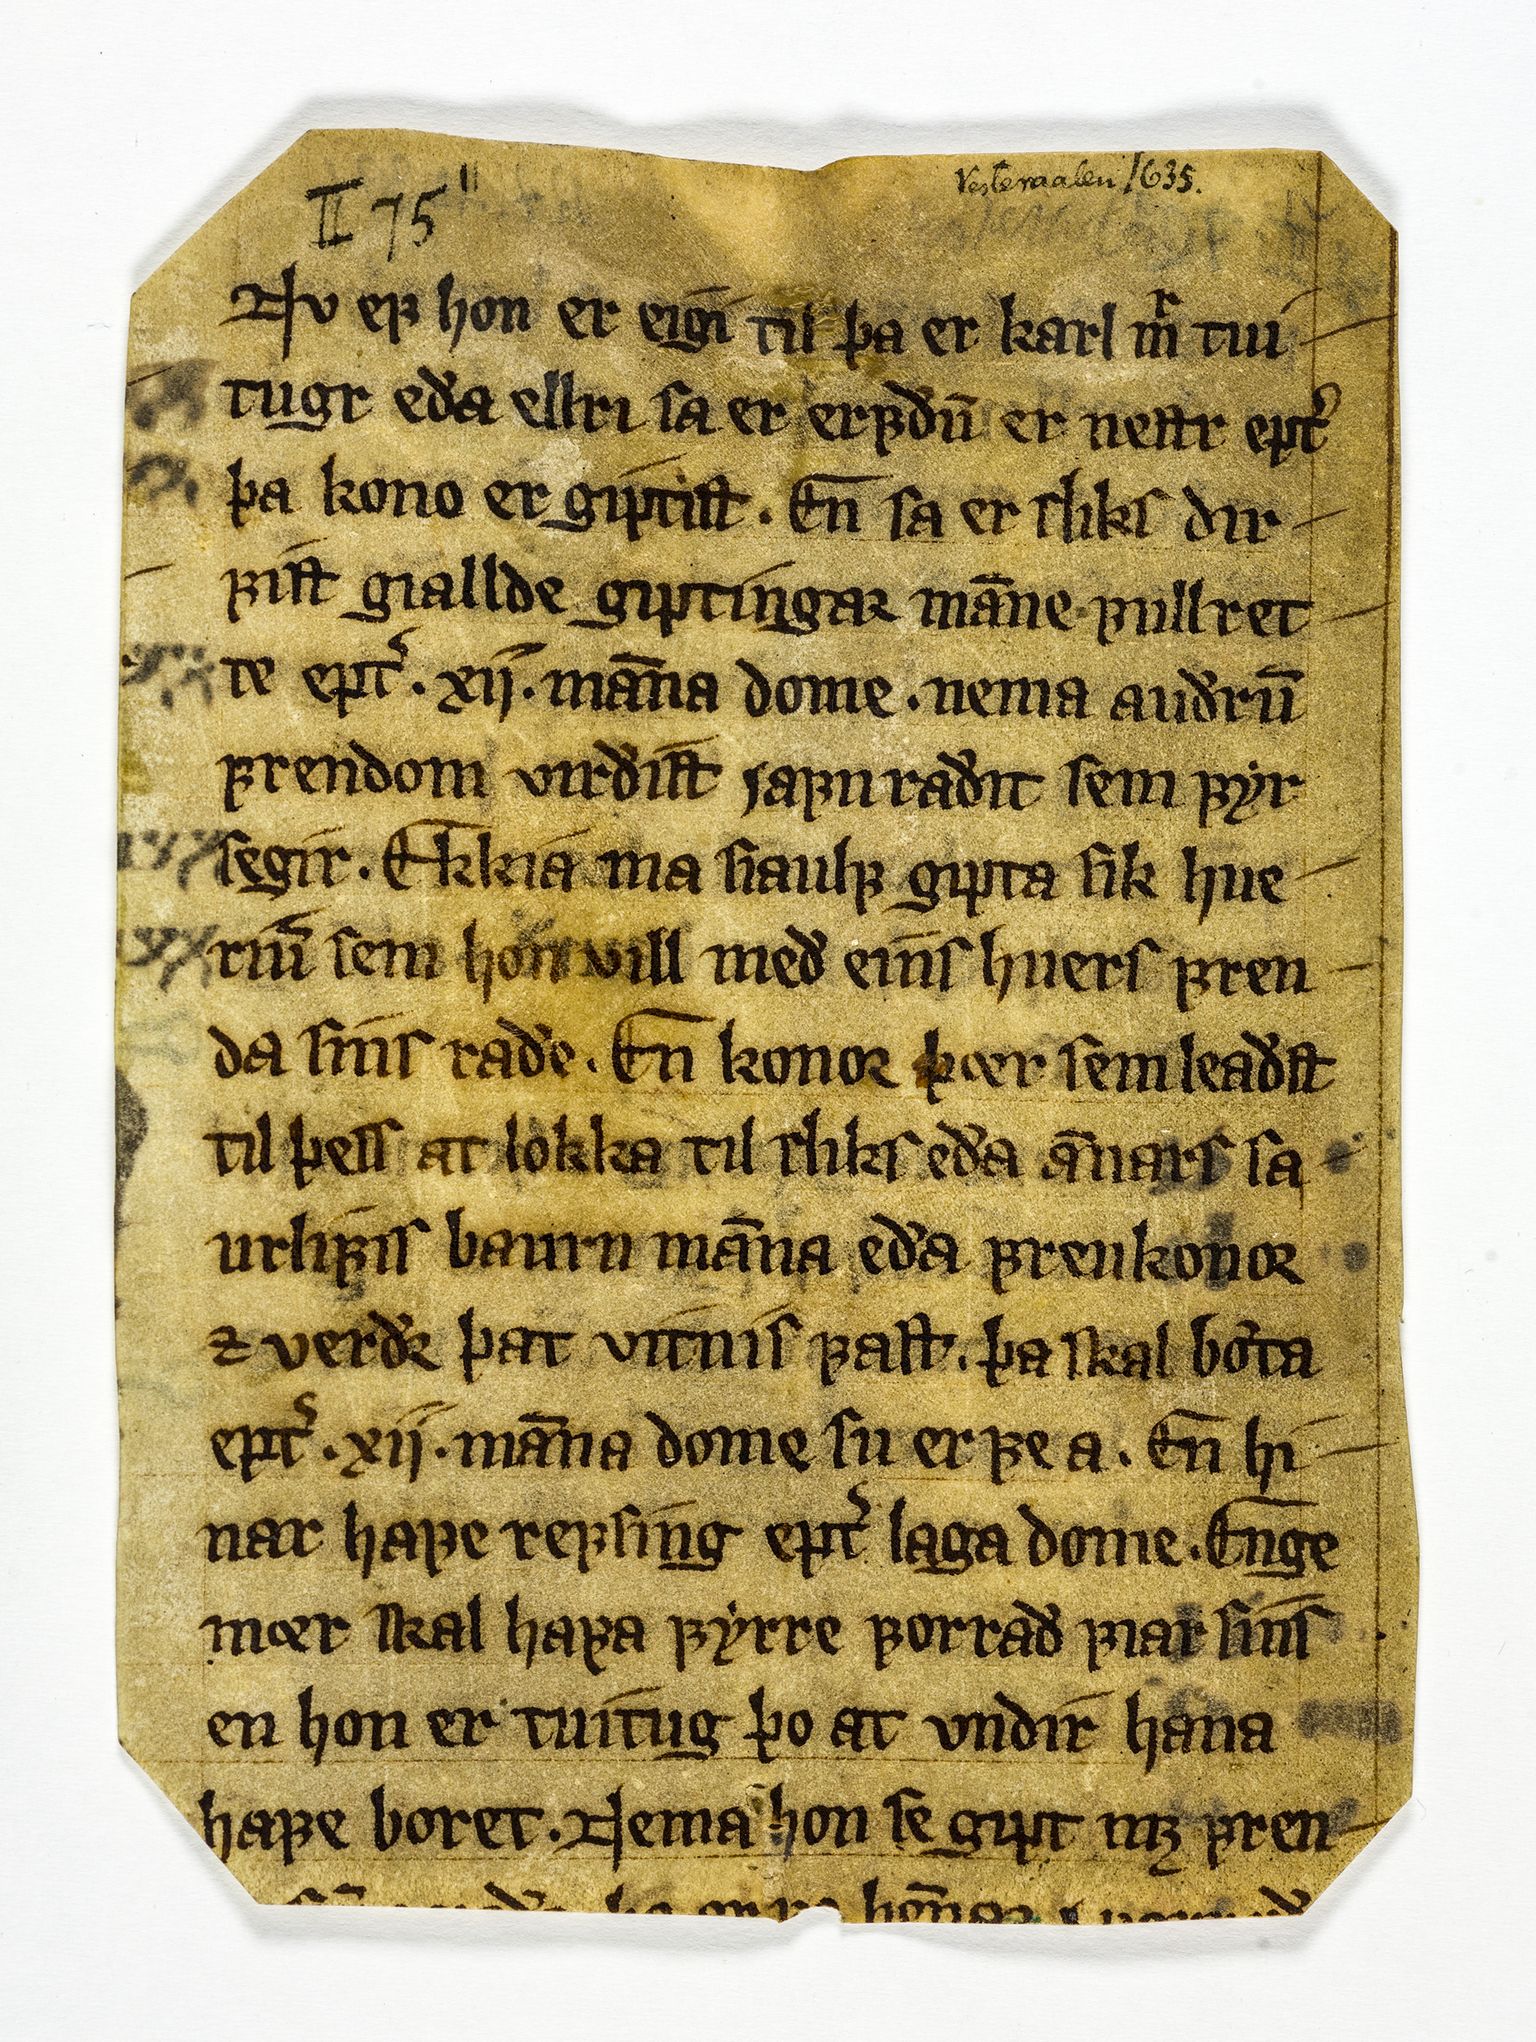 II 75"
Vesteraalen 1635.
Nv eꝼ hon er eigi til þa er karl mr̄ tui
tugr eða ellri sa er erꝼðū er nestr epť
þa kono er giptist . En̄ sa er sliks dir
ꝼist giallde giptingaꝛ mān̄e ꝼullret
te epť . xij . mān̄a dome . nema auðrū
ꝼrendom virðist saꝼu raðit sem ꝼyr
segir . Ekkia ma siaulꝼ gipta sik hue
riū sem hon vill með eīns huers ꝼren
da sīns raðe . En̄ konoꝛ þœr sem leaðst
til þess at lokka til sliks eða ān̄ars sa
urliꝼis baurn mān̄a eða ꝼrenkonoꝛ
⁊ verðꝛ þat vitnis ꝼast . þa skal bǿta
epť . xij . mān̄a dome su er ꝼe a . En̄ hi
nar haꝼe reꝼsing epť laga dome . Enge
mœr skal haꝼa ꝼyrre ꝼorrað ꝼiar sīns
en hon er tuitug þo at vndir hana
haꝼe boret . Nema hon se gipt mꝫ ꝼren